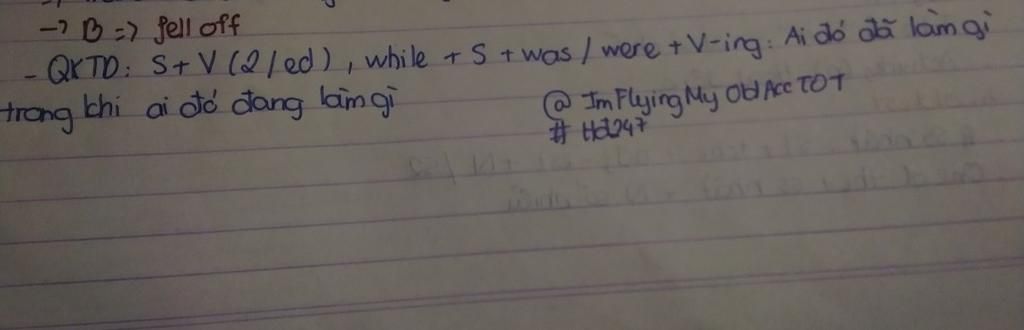 → B => fell off
- QKTD: S + V (2/ed), while + S + was / were + V-ing: Ai đó đã làm gì
trong khi ai đó đang làm gì
@ ImFlyingMyOldAccTOT
# Hd247